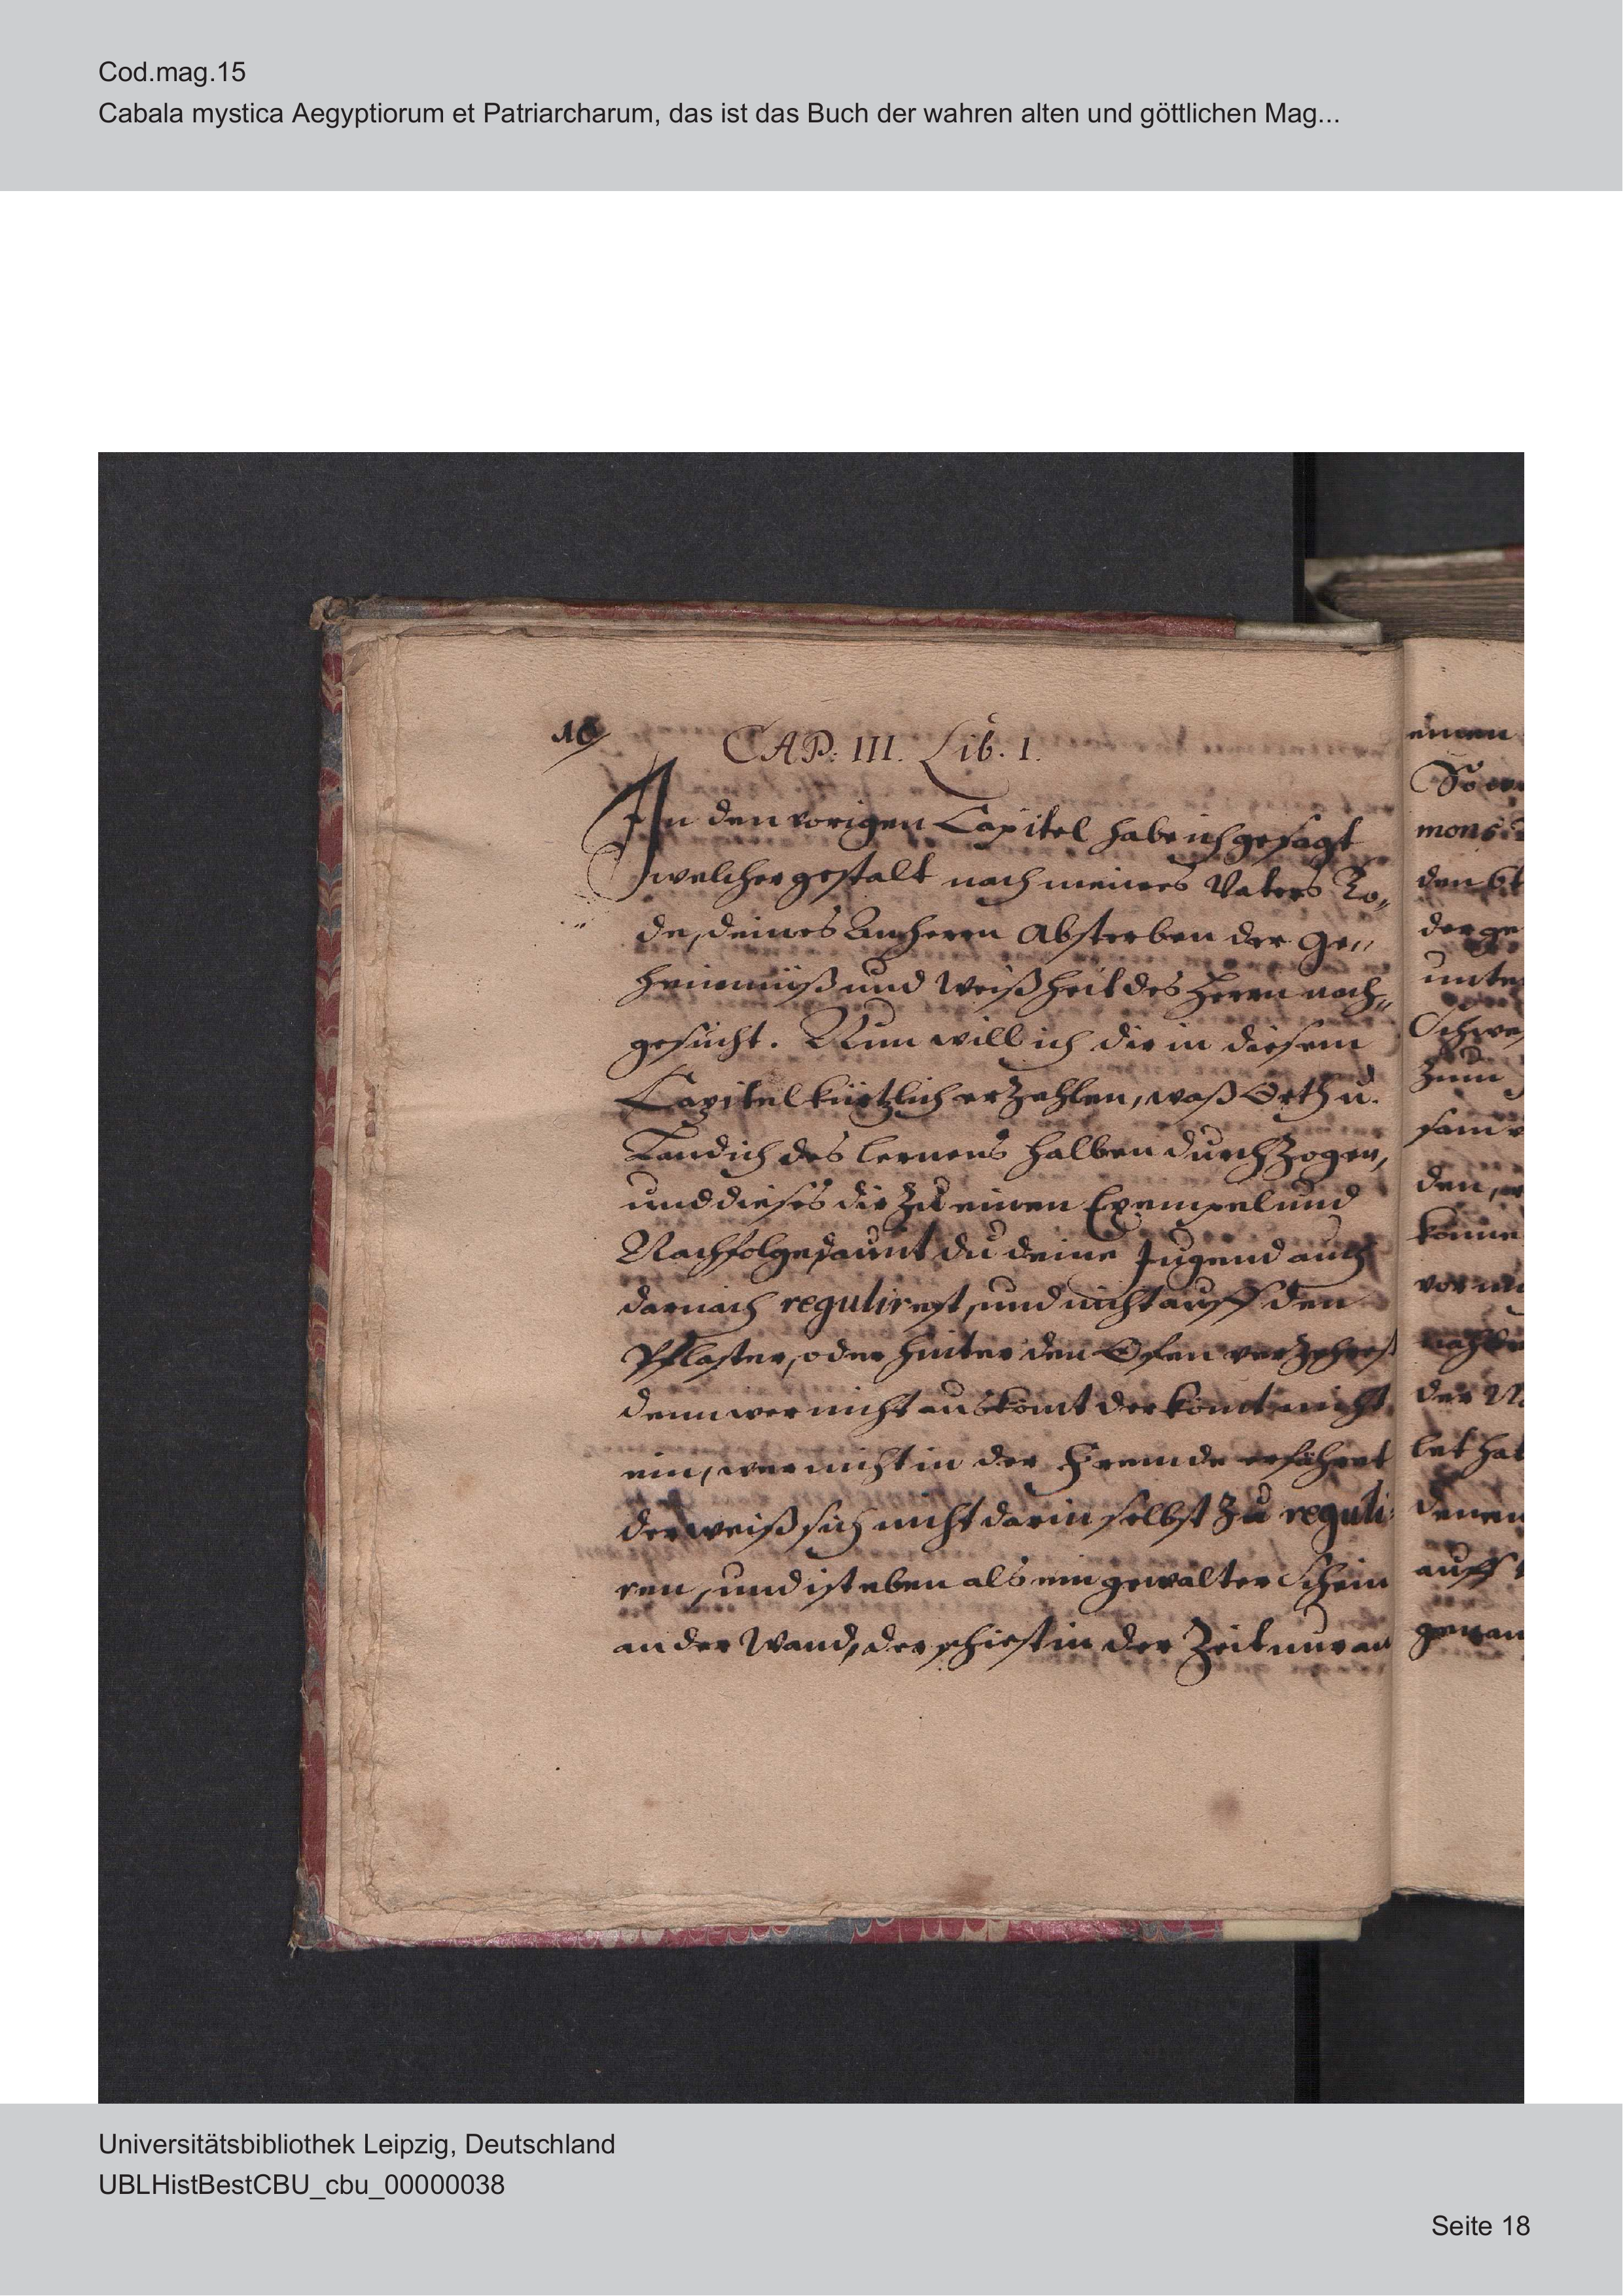 Cod.mag.15
Cabala mystica Aegyptiorum et Patriarcharum, das ist das Buch der wahren alten und göttlichen Mag...
10
CAP: III. Lib. I.
In den vorigen Capitel habe ich gesagt
welcher gestalt nach meines Vaters To„
de, deines Anherrn Absterben der Ge„
heimnüß und Weißheit des Herrn nach„
gesucht. Nun will ich dir in diesem
Capitel kürtzlich erzehlen, waß Orth u.
Land ich des lernens halben durchzogen,
und dieses dir zu einen Exempel und
Nachfolge, damit du deine Jugend auch
darnach regulirest, und nicht auff den
Pflaster, oder hinter den Ofen verzehrest
denn wer nicht auskomt der komt nicht
ein, wer nicht in der Fremde erfähret
der weiß sich nicht darin selbst zu reguli-
ren, und ist eben als ein Schein
an der Wand, der in der Zeit nur an
einen
mons
den
der ge
unte
Schwe
zum
sam
den,
könne
vor
der
let hat
denen
auff
Universitätsbibliothek Leipzig, Deutschland
UBLHistBestCBU_cbu_00000038
Seite 18